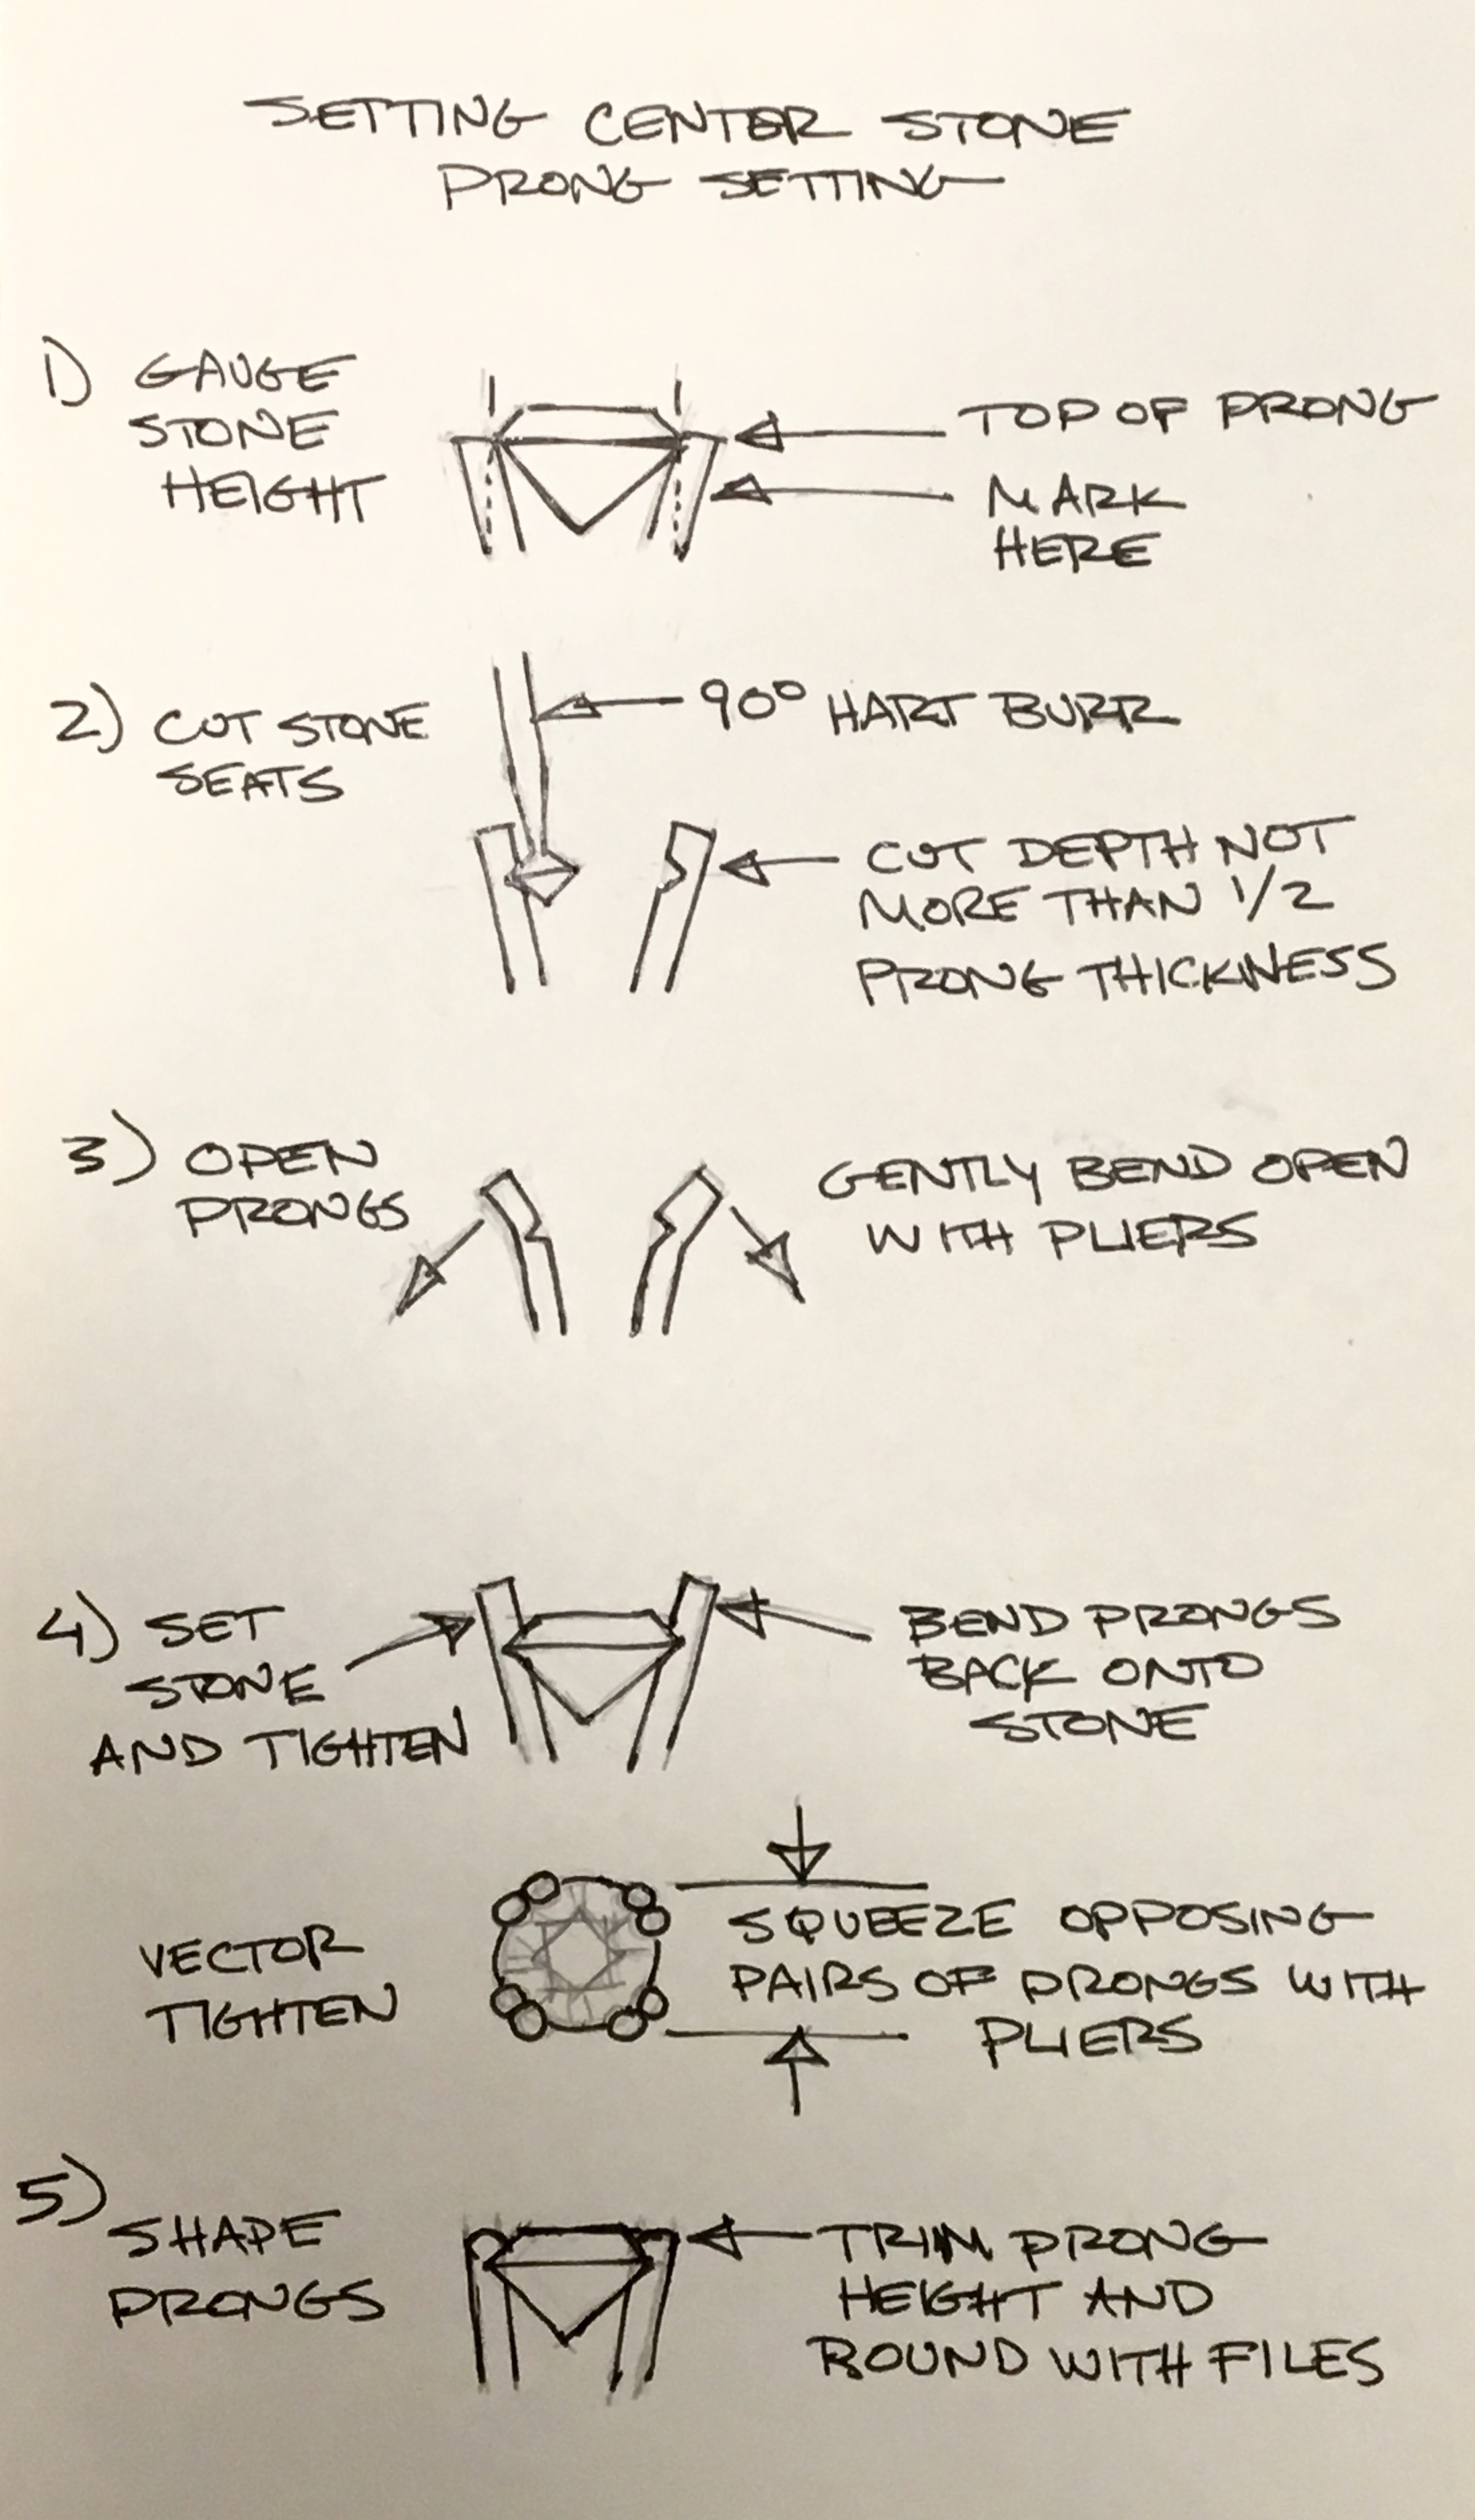 SETTING CENTER STONE
PRONG SETTING
1) GAUGE
STONE
HEIGHT
TOP OF PRONG
MARK
HERE
2) CUT STONE
SEATS
90° HART BURR
CUT DEPTH NOT
MORE THAN 1/2
PRONG THICKNESS
3) OPEN
PRONGS
GENTLY BEND OPEN
WITH PLIERS
4) SET
STONE
AND TIGHTEN
BEND PRONGS
BACK ONTO
STONE
VECTOR
TIGHTEN
SQUEEZE OPPOSING
PAIRS OF PRONGS WITH
PLIERS
5) SHAPE
PRONGS
TRIM PRONG
HEIGHT AND
ROUND WITH FILES